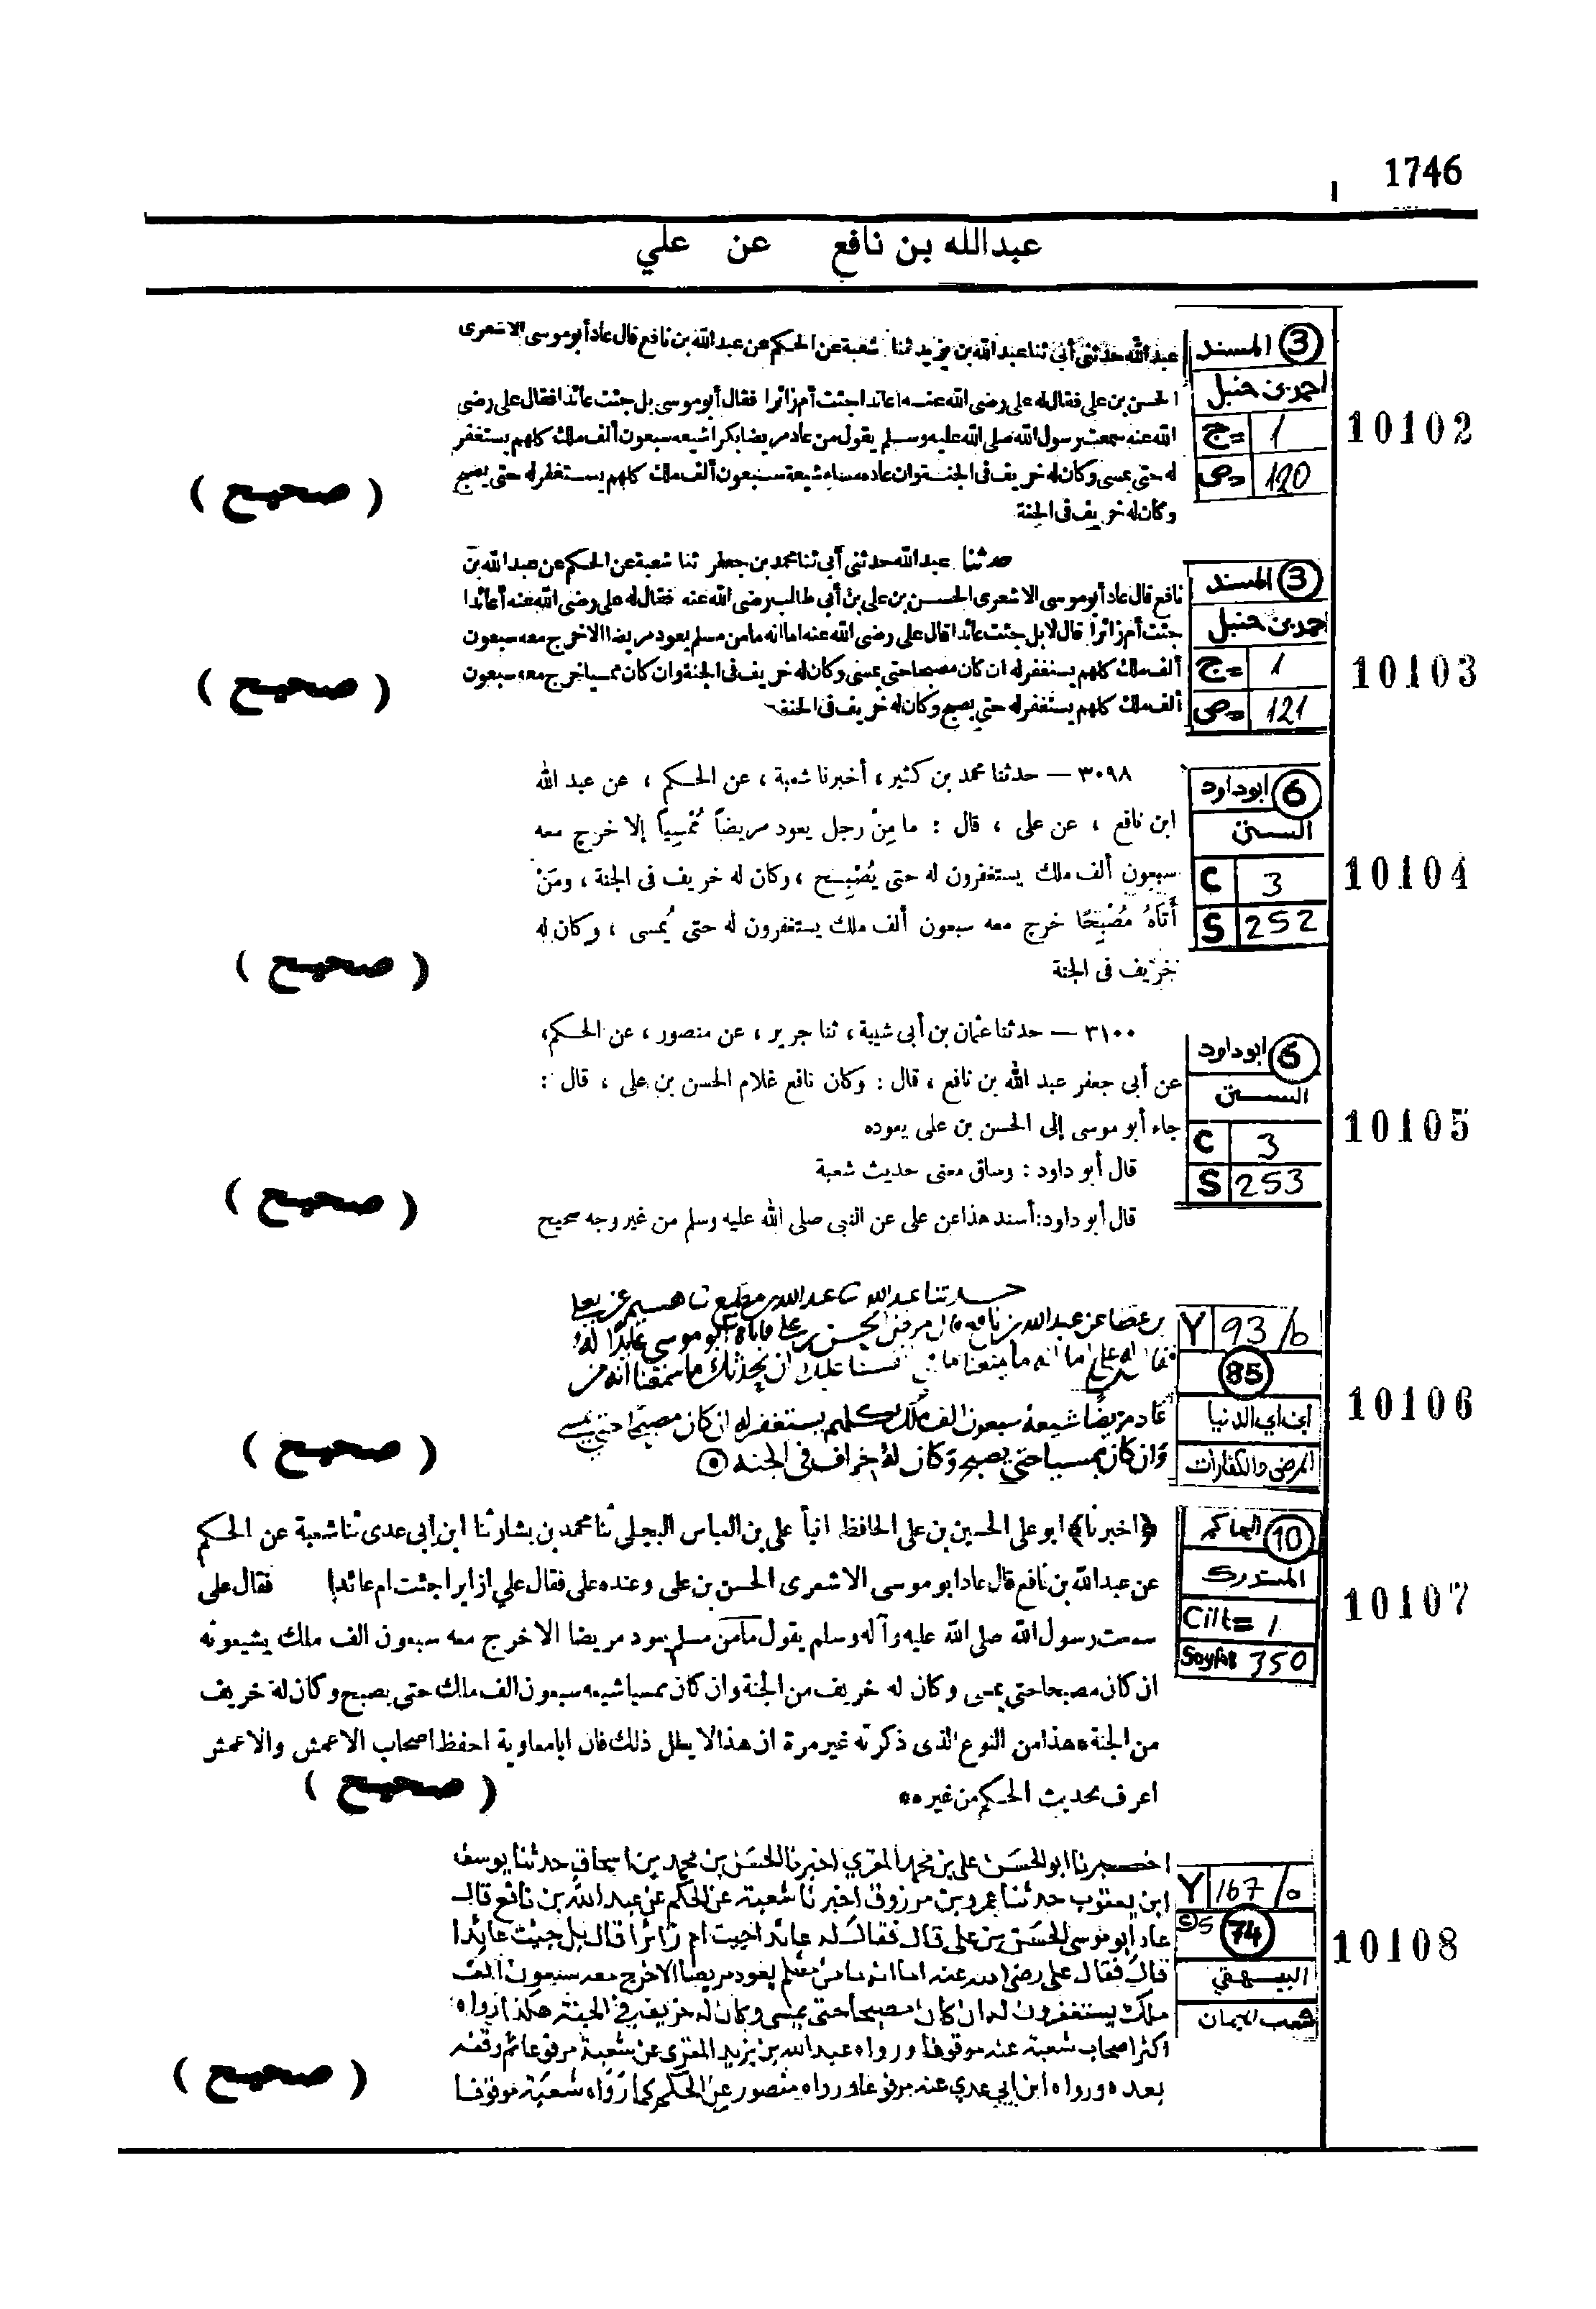 1746
عبدالله بن نافع عن علي
③ المسند
احمد بن حنبل
ج= 1
ص= 120
10102
عبدالله حدثنى أبى ثنا عبدالله بن يزيد ثنا شعبة عن الحكم عن عبدالله بن نافع قال عاد أبو موسى الاشعرى
الحسن بن على فقال له على رضى الله عنه أعائدا جئت أم زائرا فقال أبو موسى بل جئت عائدا فقال على رضى
الله عنه سمعت رسول الله صلى الله عليه وسلم يقول من عاد مريضا بكرا شيعه سبعون ألف ملك كلهم يستغفر
له حتى يمسى وكان له خريف فى الجنة وان عاده مساء شيعه سبعون ألف ملك كلهم يستغفر له حتى يصبح
وكان له خريف فى الجنة
( صحيح )
③ المسند
احمد بن حنبل
ج= 1
ص= 121
10103
حدثنا عبدالله حدثنى أبى ثنا محمد بن جعفر ثنا شعبة عن الحكم عن عبدالله بن
نافع قال عاد أبو موسى الاشعرى الحسن بن على بن أبى طالب رضى الله عنه فقال له على رضى الله عنه أعائدا
جئت أم زائرا قال لا بل جئت عائدا قال على رضى الله عنه اما انه ما من مسلم يعود مريضا الا خرج معه سبعون
ألف ملك كلهم يستغفر له ان كان مصبحا حتى يمسى وكان له خريف فى الجنة وان كان ممسيا خرج معه سبعون
ألف ملك كلهم يستغفر له حتى يصبح وكان له خريف فى الجنة
( صحيح )
⑥ ابوداود
السنن
C 3
S 252
10104
٣٠٩٨ — حدثنا محمد بن كثير ، أخبرنا شعبة ، عن الحكم ، عن عبد الله
ابن نافع ، عن على ، قال : ما مِنْ رجل يعود مريضاً مُمْسِياً إلا خرج معه
سبعون ألف ملك يستغفرون له حتى يُصْبِح ، وكان له خريف فى الجنة ، ومَنْ
أَتَاهُ مُصْبِحًا خرج معه سبعون ألف ملك يستغفرون له حتى يُمسى ، وكان له
خريف فى الجنة
( صحيح )
⑥ ابوداود
السنن
C 3
S 253
10105
٣١٠٠ — حدثنا عثمان بن أبى شيبة ، ثنا جرير ، عن منصور ، عن الحكم ،
عن أبى جعفر عبد الله بن نافع ، قال : وكان نافع غلام الحسن بن على ، قال :
جاء أبو موسى إلى الحسن بن على يعوده
قال أبو داود : وساق معنى حديث شعبة
قال أبو داود: أسند هذا عن على عن النبى صلى الله عليه وسلم من غير وجه صحيح
( صحيح )
Y 93/b
85
ابن ابي الدنيا
المرض والكفارات
10106
حدثنا عبدالله ثنا عبدالله بن مطيع ثنا هشيم عن يعلى
بن عطا عن عبدالله بن نافع قال مرض الحسن بن علي فاتاه ابو موسى عايدًا له
فقال له علي اما انه ما يمنعنا ما في انفسنا عليك ان نحدثك ما سمعنا انه من
عاد مريضًا شيعه سبعون الف ملك كلهم يستغفر له ان كان مصبحًا حتى يمسي
وان كان ممسيا حتى يصبح وكان له خراف في الجنه
( صحيح )
⑩ الحاكم
المستدرك
Cilt= 1
Sayfa 350
10107
﴿اخبرنا﴾ ابو على الحسين بن على الحافظ انبأ على بن العباس البجلى ثنا محمد بن بشار ثنا ابن ابى عدى ثنا شعبة عن الحكم
عن عبدالله بن نافع قال عاد ابو موسى الاشعرى الحسن بن على وعنده على فقال علي ازايرا جئت ام عائدا فقال على
سمعت رسول الله صلى الله عليه وآله وسلم يقول ما من مسلم يعود مريضا الا خرج معه سبعون الف ملك يشيعونه
ان كان مصبحا حتى يمسى وكان له خريف من الجنة وان كان ممسيا شيعه سبعون الف ملك حتى يصبح وكان له خريف
من الجنة * هذا من النوع الذى ذكرته غير مرة ان هذا لا يعلل ذلك فان ابا معاوية احفظ اصحاب الاعمش والاعمش
اعرف بحديث الحكم من غيره *
( صحيح )
Y 167/a
©S 74
البيهقي
شعب الايمان
10108
اخبرنا ابو الحسن علي بن محمد المقري اخبرنا الحسن بن محمد بن اسحاق حدثنا يوسف
ابن يعقوب حدثنا عمرو بن مرزوق اخبرنا شعبة عن الحكم عن عبد الله بن نافع قال
عاد ابو موسى الحسن بن علي قال فقال له عائدا جيت ام زائرا قال بل جيت عائدا
قال فقال على رضى الله عنه اما انه ما من مسلم يعود مريضا الا خرج معه سبعون الف
ملك يستغفرون له ان كان مصبحا حتى يمسى وكان له خريف في الجنة هكذا رواه
اكثر اصحاب شعبة عنه موقوفا ورواه عبد الله بن يزيد المقرى عن شعبة مرفوعا ثم وقفه
بعده ورواه ابن ابي عدي عنه مرفوعا ورواه منصور عن الحكم كما رواه شعبة موقوفا
( صحيح )